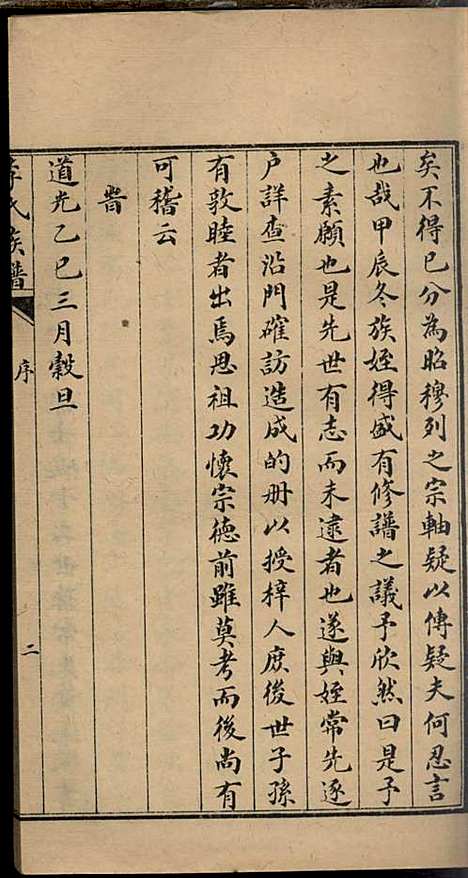 矣不得已分為昭穆列之宗軸疑以傳疑夫何忍言
也哉甲辰冬族姪得盛有修譜之議予欣然曰是予
之素願也是先世有志而未逮者也遂與姪常先逐
户詳查沿門確訪造成的册以授梓人庶後世子孫
有敦睦者出焉思祖功懷宗德前雖莫考而後尚有
可稽云
旹
道光乙巳三月穀旦
李氏族譜
序
二